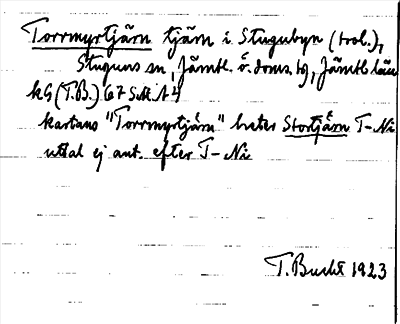 Torrmyrtjärn tjärn i Stugubyn (trol.),
Stuguns sn, Jämtl. ö. doms. tg, Jämtl. län
kG (T.B.) 67 S.M.
kartans "Torrmyrtjärn" heter Stortjärn T-Ni
uttal ej ant. efter T-Ni
T. Bucht 1923